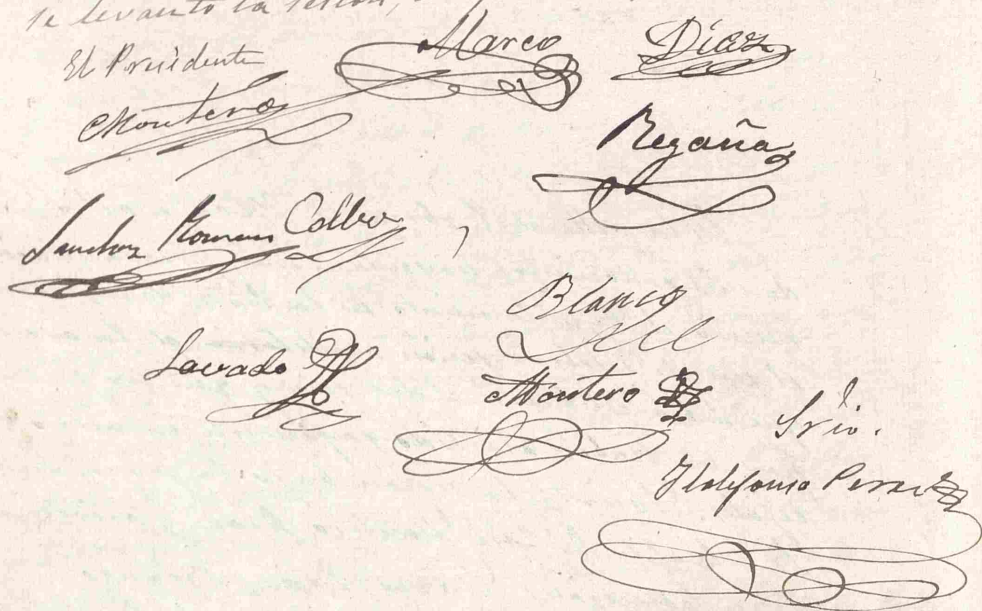 se levantó la sesión,
El Presidente
Montero
Marco
Díaz
Regaña
Sanchez Roman Calvo
Blanco
Lavado
Montero
Srio.
Ildefonso